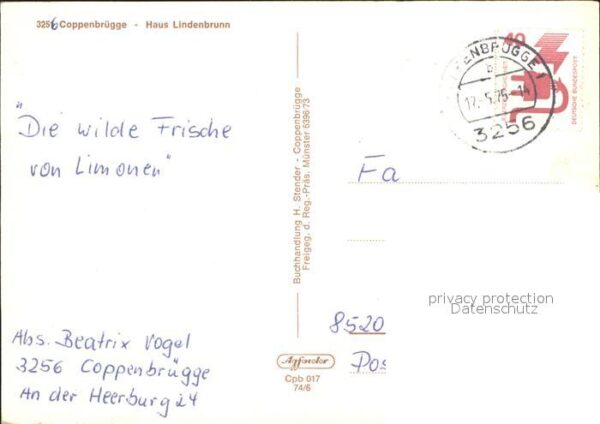 3256 Coppenbrügge - Haus Lindenbrunn
"Die wilde Frische
von Limonen"
Abs. Beatrix Vogel
3256 Coppenbrügge
An der Heerburg 24
Buchhandlung H. Stender - Coppenbrügge
Freigeg. d. Reg.-Präs. Münster 6396/73
Agfacolor
Cpb 017
74/6
40
DEUTSCHE BUNDESPOST
PENBRÜGGE 1
b
12.-5.75-14
3256
Fa
privacy protection
Datenschutz
8520
Pos